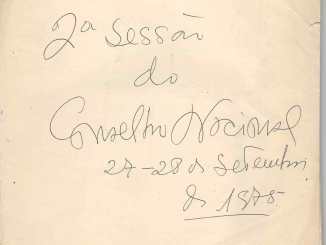 2ª sessão
do
Conselho Nacional
27-28 de Setembro
de 1975